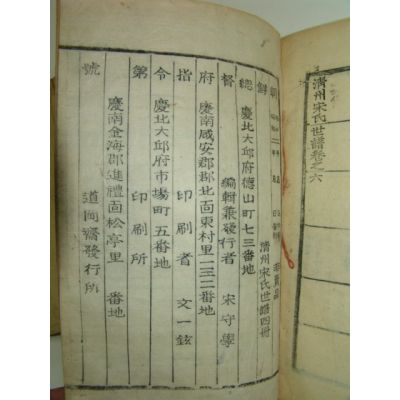 淸州宋氏世譜卷之六
朝
鮮 淸州宋氏世譜四冊
總 慶北大邱府德山町七三番地
督 編輯兼發行者 宋守學
府 慶南咸安郡郡北面東村里一三二番地
指 印刷者 文一鉉
令 慶北大邱府市場町五番地
第 印刷所
慶南金海郡進禮面松亭里 番地
號 道岡齋發行所